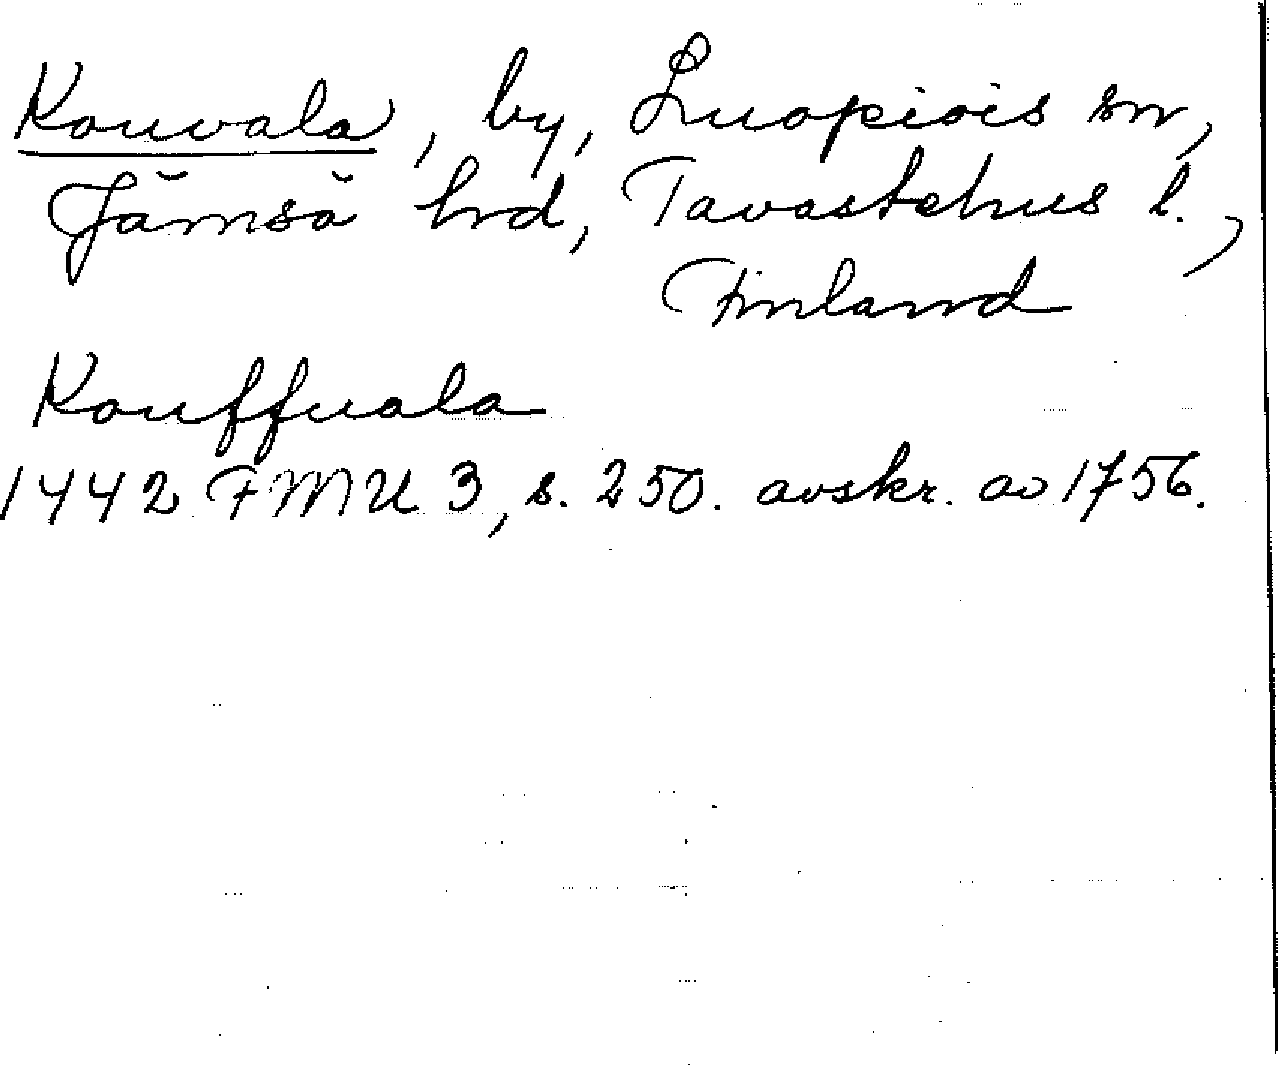 Kouvala, by, Luopiois sn,
Jämsä hrd, Tavastehus l.,
Finland
Kouffuala
1442 FMU 3, s. 250. avskr. av 1756.